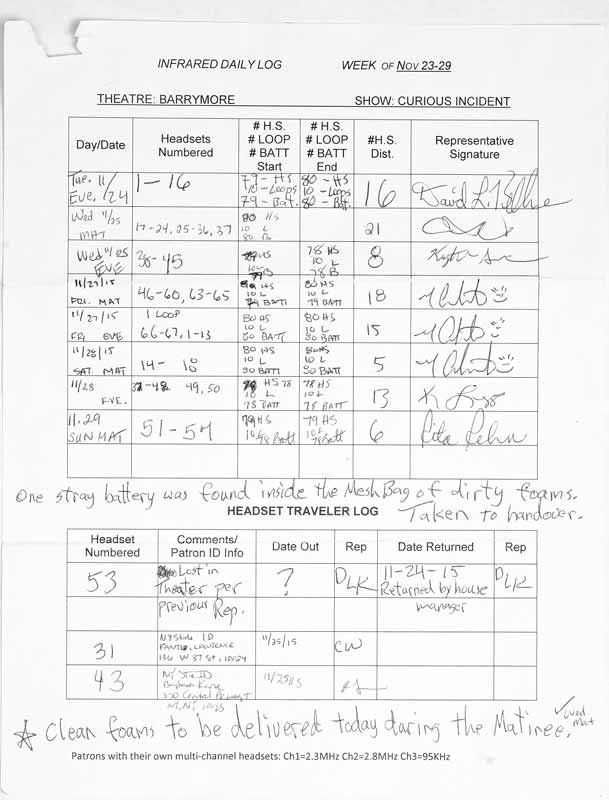 INFRARED DAILY LOG WEEK OF NOV 23-29
THEATRE: BARRYMORE SHOW: CURIOUS INCIDENT
Day/Date Headsets Numbered # H.S. # LOOP # BATT Start # H.S. # LOOP # BATT End #H.S. Dist. Representative Signature
Tue. 11/24 Eve. 1-16 79-HS 10-Loops 79-Bat. 80-HS 10-Loops 80-Bat. 16
Wed 11/25 MAT 17-24, 25-36, 37 80 HS 10 L 80 B 21
Wed 11/25 EVE 38-45 HS 10 L 78 HS 10 L 78 B 8
11/27/15 FRI. MAT 46-60, 63-65 HS 10 L 79 BATT 80 HS 10 L 79 BATT 18
11/27/15 FRI EVE 1 LOOP 66-67, 1-13 80 HS 10 L 80 BATT 80 HS 10 L 80 BATT 15
11/28/15 SAT. MAT 14-18 80 HS 10 L 80 BATT 80 HS 10 L 80 BATT 5
11/28 EVE. 49, 50 HS 78 10 L 78 BATT 78 HS 10 L 78 BATT 13
11.29 SUN MAT 51-57 79 HS 10 L 78 Batt 79 HS 10 L 78 Batt 6 Rita Rehn
One stray battery was found inside the Mesh Bag of dirty foams.
Taken to handover.
HEADSET TRAVELER LOG
Headset Numbered Comments/ Patron ID Info Date Out Rep Date Returned Rep
53 Lost in Theater per previous Rep. ? DLK 11-24-15 Returned by house manager DLK
31 NY State ID LAWRENCE 136 W 87 St, 10024 11/25/15 CW
43 NY State ID 11/25/15
☆ Clean foams to be delivered today during the Matinee. ✓ Wed Mat
Patrons with their own multi-channel headsets: Ch1=2.3MHz Ch2=2.8MHz Ch3=95KHz